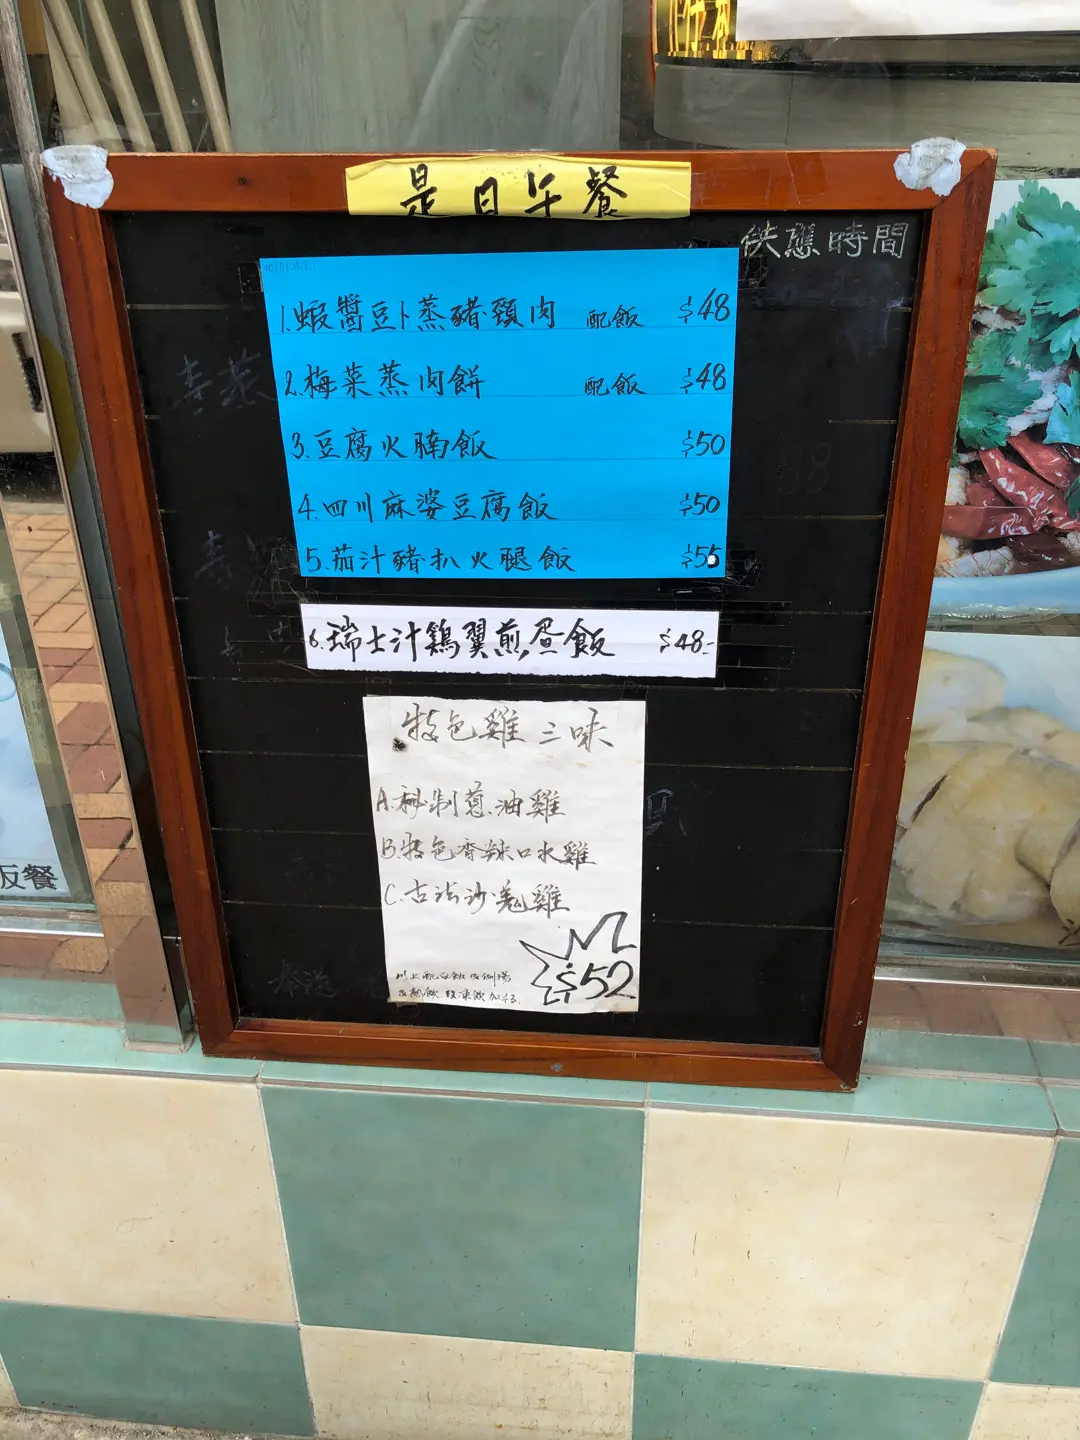 是日午餐
供應時間
1.蝦醬豆卜蒸豬頸肉 配飯 $48
2.梅菜蒸肉餅 配飯 $48
3.豆腐火腩飯 $50
4.四川麻婆豆腐飯 $50
5.茄汁豬扒火腿飯 $55
6.瑞士汁鷄翼煎蛋飯 $48-
特色雞三味
A.秘制葱油雞
B.特色香辣口水雞
C.古法沙羗雞
$52
以上配白飯及例湯
飯餐